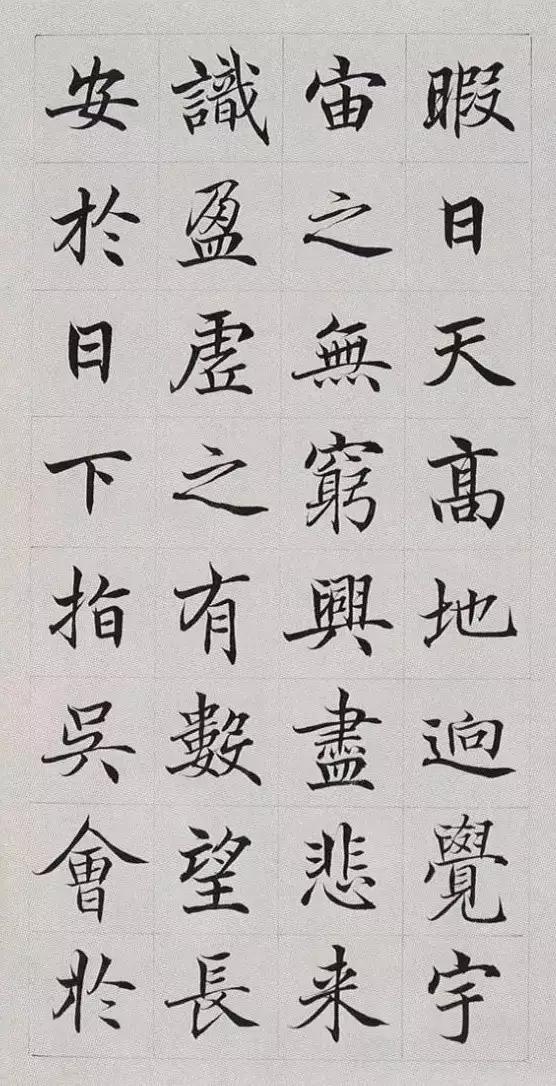 暇日天高地逈覺宇
宙之無窮興盡悲来
識盈虛之有數望長
安於日下指吳會於